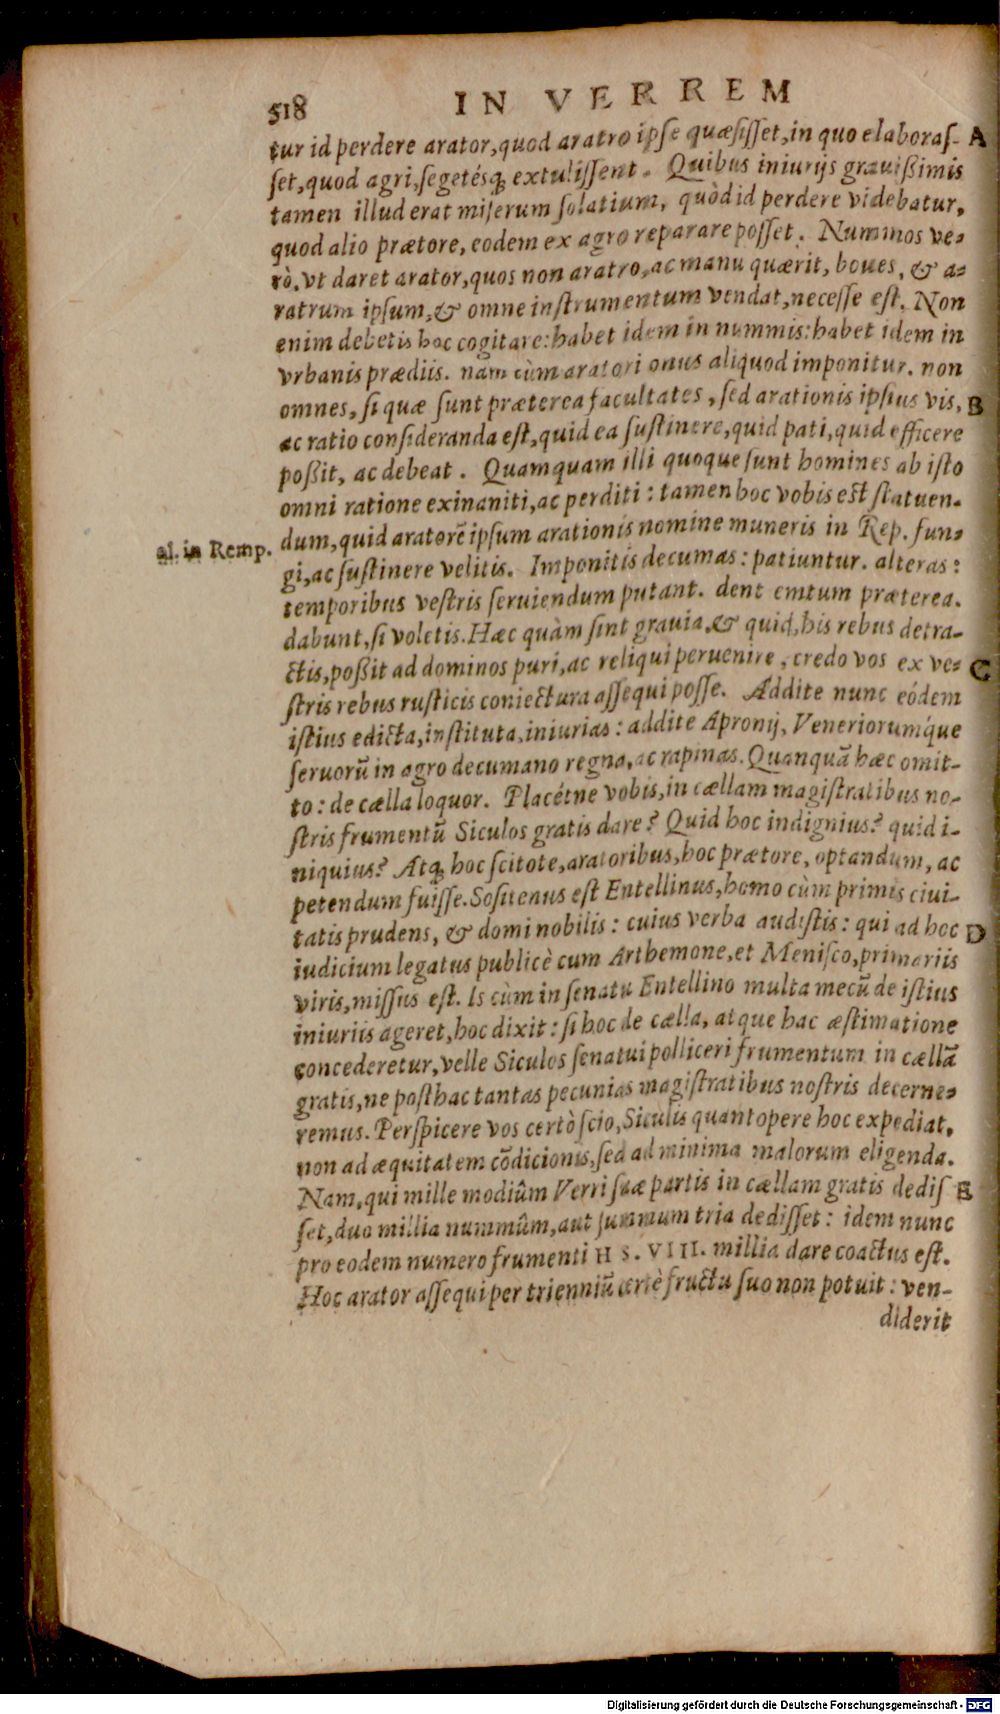 518 IN VERREM
tur id perdere arator, quod aratro ipse quæsisset, in quo elaboras- A
set, quod agri, segetésq; extulissent. Quibus iniurijs grauißimis
tamen illud erat miserum solatium, quòd id perdere videbatur,
quod alio prætore, eodem ex agro reparare posset. Nummos ve-
rò, vt daret arator, quos non aratro, ac manu quærit, boues, & a-
ratrum ipsum, & omne instrumentum vendat, necesse est. Non
enim debetis hoc cogitare: habet idem in nummis: habet idem in
vrbanis prædiis. nam cùm aratori onus aliquod imponitur. non
omnes, si quæ sunt præterea facultates, sed arationis ipsius vis, B
ac ratio consideranda est, quid ea sustinere, quid pati, quid efficere
poßit, ac debeat. Quamquam illi quoque sunt homines ab isto
omni ratione exinaniti, ac perditi: tamen hoc vobis est statuen-
dum, quid aratorē ipsum arationis nomine muneris in Rep. fun-
al. in Remp.
gi, ac sustinere velitis. Imponitis decumas: patiuntur. alteras:
temporibus vestris seruiendum putant. dent emtum præterea.
dabunt, si voletis. Hæc quàm sint grauia, & quid, his rebus detra-
ctis, poßit ad dominos puri, ac reliqui peruenire, credo vos ex ve- C
stris rebus rusticis coniectura assequi posse. Addite nunc eódem
istius edicta, instituta, iniurias: addite Apronij, Veneriorumq́ue
seruorū in agro decumano regna, ac rapinas. Quanquā hæc omit-
to: de cælla loquor. Placétne vobis, in cællam magistratibus no-
stris frumentū Siculos gratis dare? Quid hoc indignius? quid i-
niquius? Atq; hoc scitote, aratoribus, hoc prætore, optandum, ac
petendum fuisse. Sositenus est Entellinus, homo cùm primis ciui-
tatis prudens, & domi nobilis: cuius verba audistis: qui ad hoc D
iudicium legatus publicè cum Arthemone, et Menisco, primariis
viris, missus est. Is cùm in senatu Entellino multa mecū de istius
iniuriis ageret, hoc dixit: si hoc de cælla, atque hac æstimatione
concederetur, velle Siculos senatui polliceri frumentum in cællā
gratis, ne posthac tantas pecunias magistratibus nostris decerne-
remus. Perspicere vos certò scio, Siculis quantopere hoc expediat,
non ad æquitatem cōdicionis, sed ad minima malorum eligenda.
Nam, qui mille modiûm Verri suæ partis in cællam gratis dedis E
set, duo millia nummûm, aut summum tria dedisset: idem nunc
pro eodem numero frumenti HS. VIII. millia dare coactus est.
Hoc arator assequi per trienniū certè fructu suo non potuit: ven-
diderit
Digitalisierung gefördert durch die Deutsche Forschungsgemeinschaft - DFG